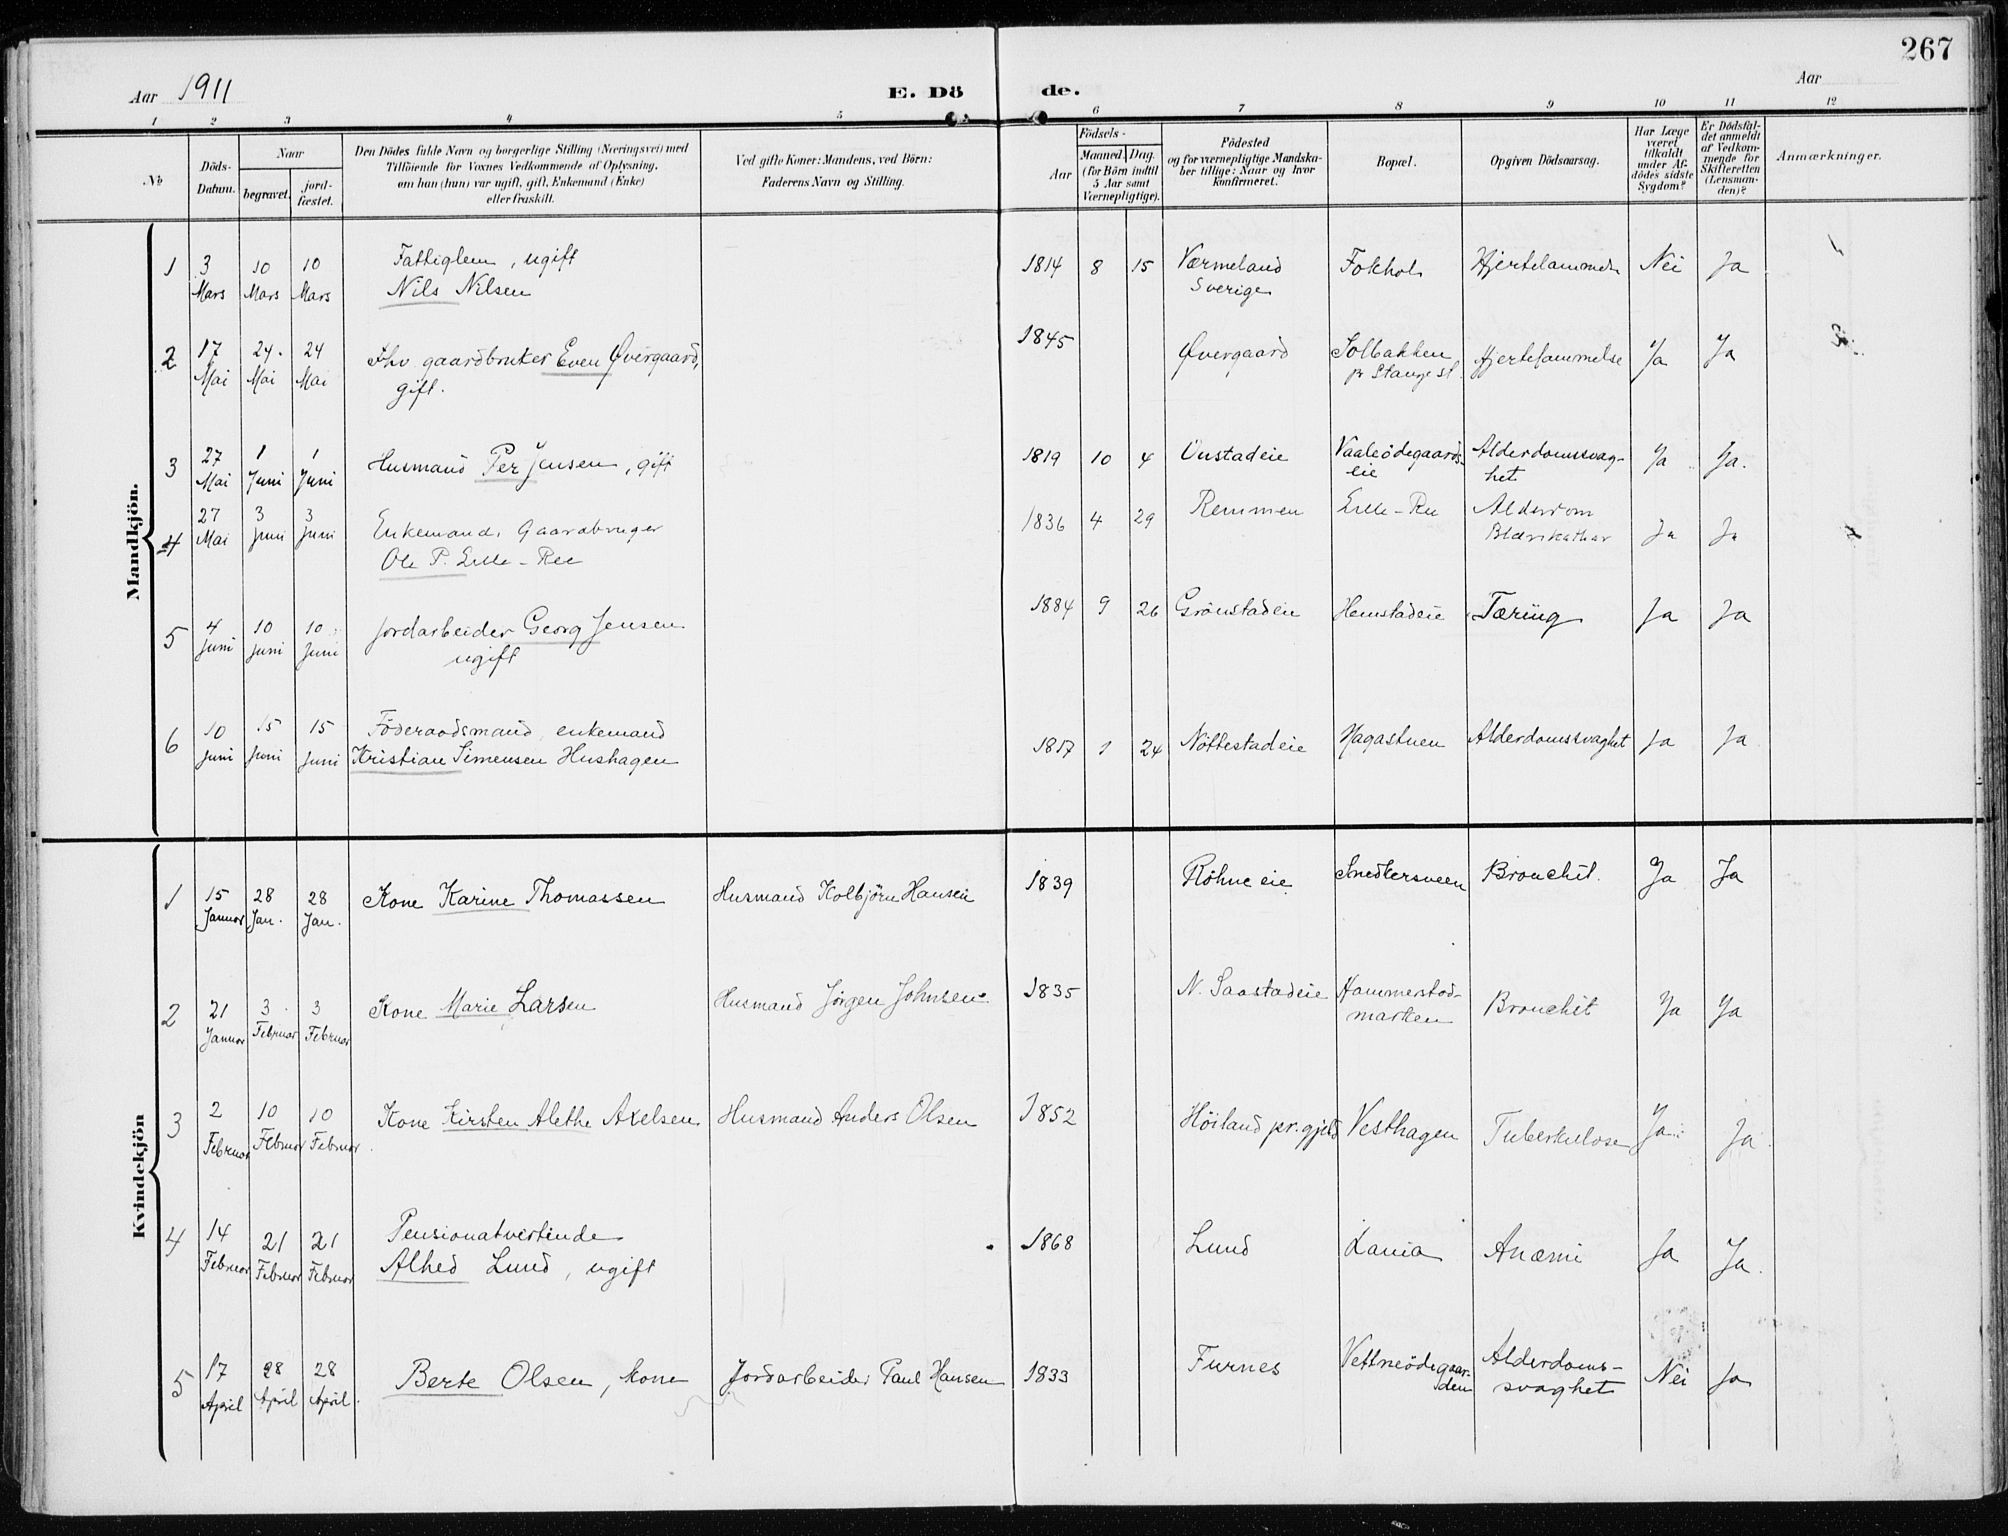 267
Aar 1911
E. Döde.
Aar
1 2 3 4 5 6 7 8 9 10 11 12
No
Döds-Datum.
Naar
begravet.
jordfæstet.
Den Dödes fulde Navn og borgerlige Stilling (Næringsvei) med
Tilföiende for Voxnes Vedkommende af Oplysning,
om han (hun) var ugift, gift, Enkemand (Enke)
eller fraskilt.
Ved gifte Koner: Mandens, ved Börn:
Faderens Navn og Stilling.
Födsels-
Aar
Maaned. Dag.
(for Börn indtil
5 Aar samt
Værnepligtige).
Födested
og for værnepligtige Mandska-
ber tillige: Naar og hvor
konfirmeret.
Bopæl.
Opgiven Dödsaarsag.
Har Læge
været
tilkaldt
under Af-
dödes sidste
Sygdom?
Er Dödsfal-
det anmeldt
af Vedkom-
mende for
Skifteretten
(Lensman-
den)?
Anmærkninger.
Mandkjön.
1 3 Mars 10 Mars 10 Mars Fattiglem, ugift
Nils Nilsen 1814 8 15 Værmeland
Sverige Fokhol Hjertelammelse Nei Ja
2 17 Mai 24. Mai 24 Mai Fhv gaardbruker Even Øvergaard,
gift. 1845 Øvergaard Solbakken
pr Stange st. Hjertelammelse Ja Ja
3 27 Mai 1 Juni 1 Juni Husmand Per Jensen, gift 1819 10 4 Uustadeie Vaaleödegaards-
eie Alderdomssvag-
het Ja Ja.
4 27 Mai 3 Juni 3 Juni Enkemand, Gaardbruger
Ole P. Lille-Ree 1836 4 29 Remmen Lille-Ree Alderdom
Blærekathar Ja Ja
5 4 Juni 10 Juni 10 Juni Jordarbeider Georg Jensen
ugift 1884 9 26 Grönstadeie Hemstadeie Tæring Ja Ja
6 10 Juni 15 Juni 15 Juni Föderaadsmand, enkemand
Kristian Simensen Hushagen 1817 1 24 Nöttestadeie Hagastuen Alderdomssvaghet Ja Ja
Kvindekjön
1 15 Januar 28 Jan. 28 Jan. Kone Karine Thomassen Husmand Kolbjörn Hansen 1839 Röhne eie Snedkersveen Bronchit. Ja Ja
2 21 Januar 3 Februar 3 Februar Kone Marie Larsen Husmand Jörgen Johnsen 1835 N. Saastadeie Hammerstad-
marken Bronchit Ja Ja
3 2 Februar 10 Februar 10 Februar Kone Kirsten Alethe Axelsen Husmand Anders Olsen 1852 Höiland pr.gjeld Vesthagen Tuberkulose Ja Ja
4 14 Februar 21 Februar 21 Februar Pensionatvertinde
Alhed Lund, ugift 1868 Lund Lania Anæmi Ja Ja.
5 17 April 28 April 28 April Berte Olsen, kone Jordarbeider Paul Hansen 1833 Furnes Vettneödegaar-
den Alderdoms-
svaghet Nei Ja